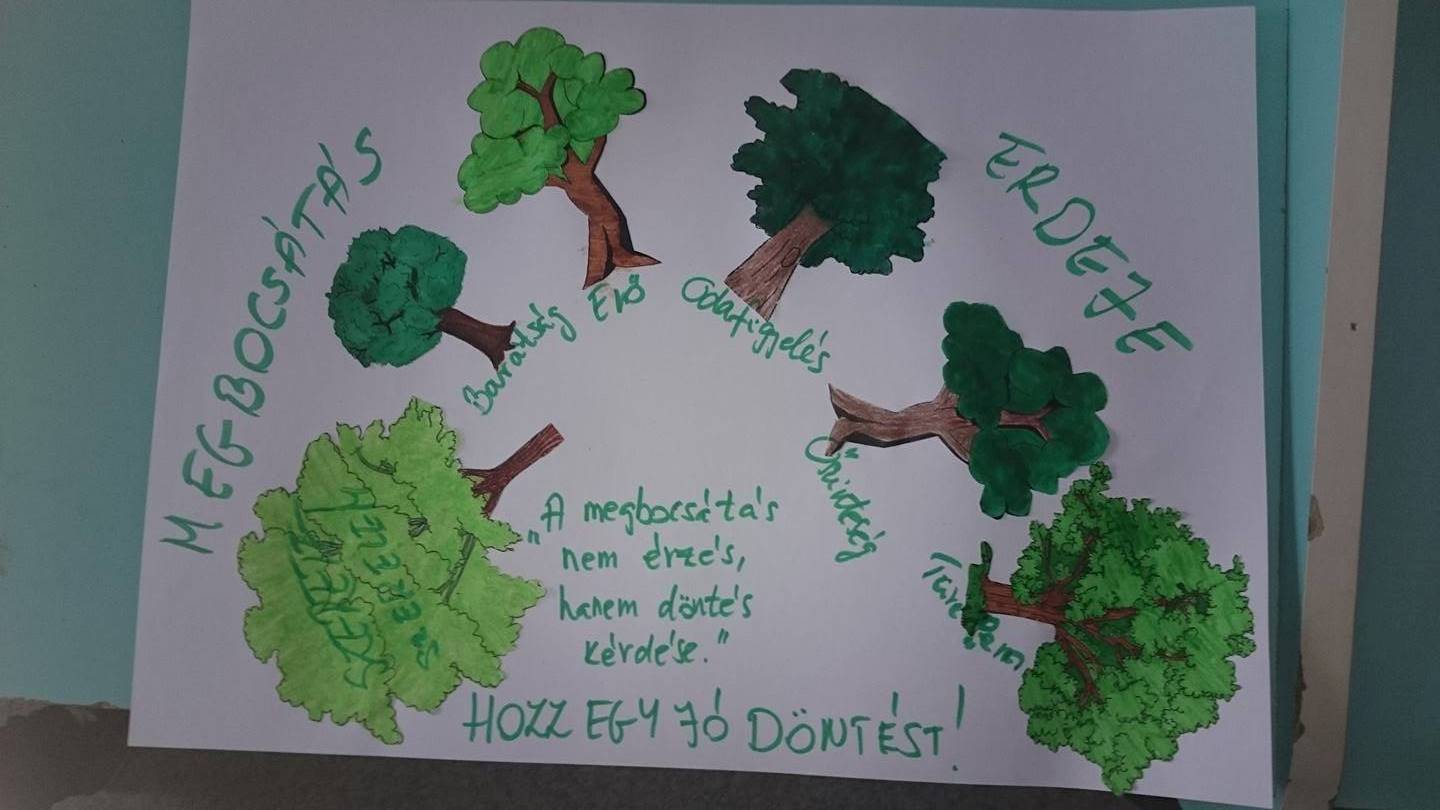 MEGBOCSÁTÁS
ERDEJE
Barátság
Erő
Odafigyelés
Őszinteség
Türelem
"A megbocsátás
nem érzés,
hanem döntés
kérdése."
HOZZ EGY JÓ DÖNTÉST!